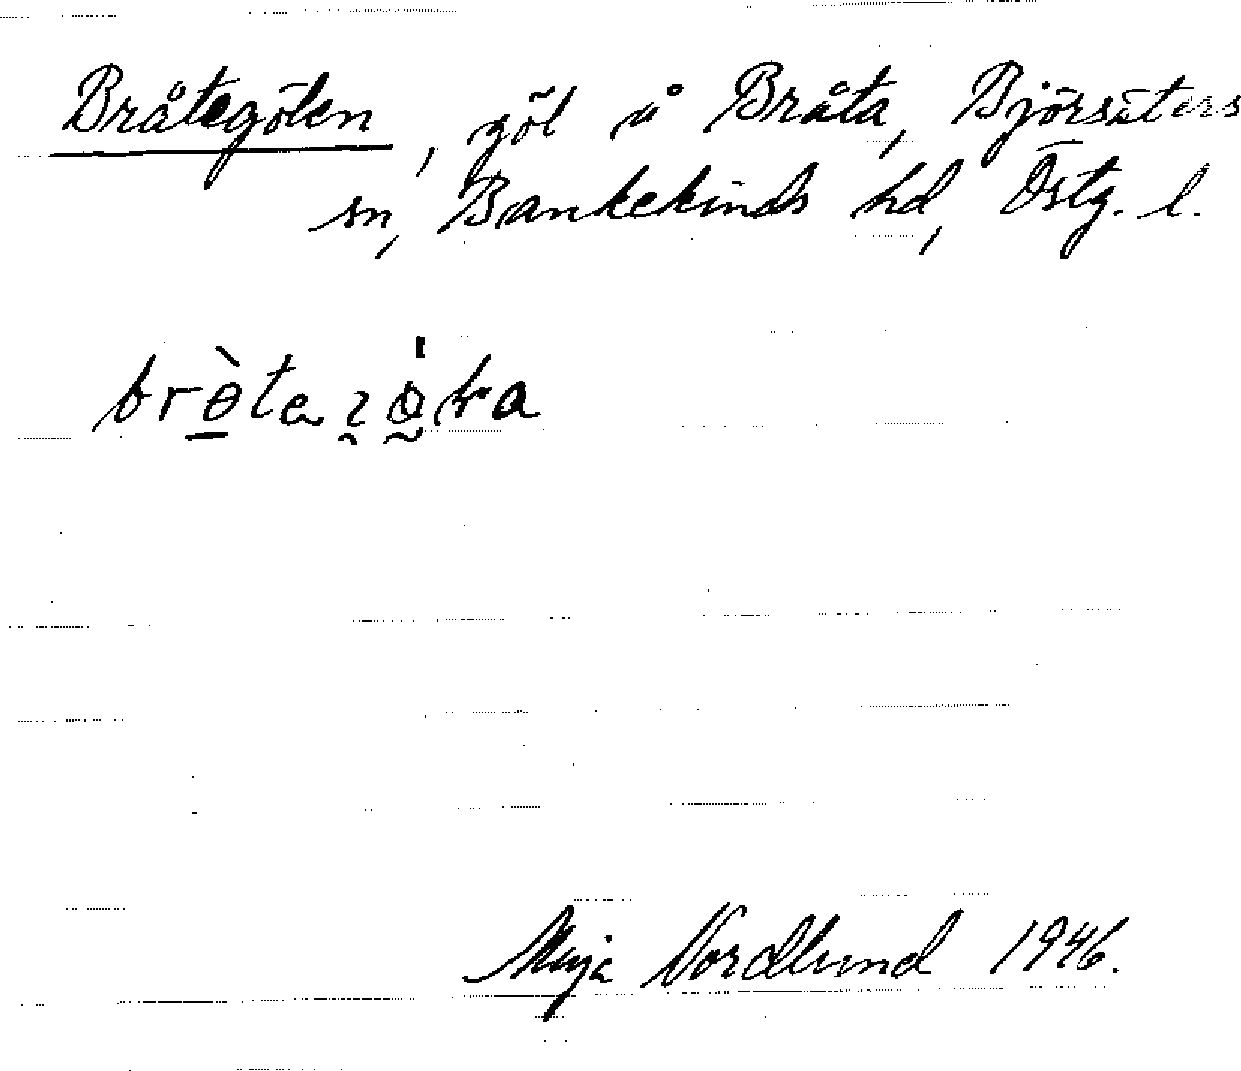 Bråtegölen, göl å Bråta, Björsäters
sn, Bankekinds hd, Östg. l.
Maja Nordlund 1946.